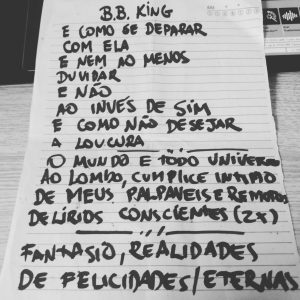 B.B. KING
E COMO SE DEPARAR
COM ELA
E NEM AO MENOS
DUVIDAR
E NÃO
AO INVÉS DE SIM
E COMO NÃO DESEJAR
A LOUCURA
O MUNDO E TODO UNIVERSO
AO LOMBO, CUMPLICE INTIMO
DE MEUS PALPANEIS E REMOTOS
DELÍRIOS CONSCIENTES (2X)
FANTASIO, REALIDADES
DE FELICIDADES/ETERNAS